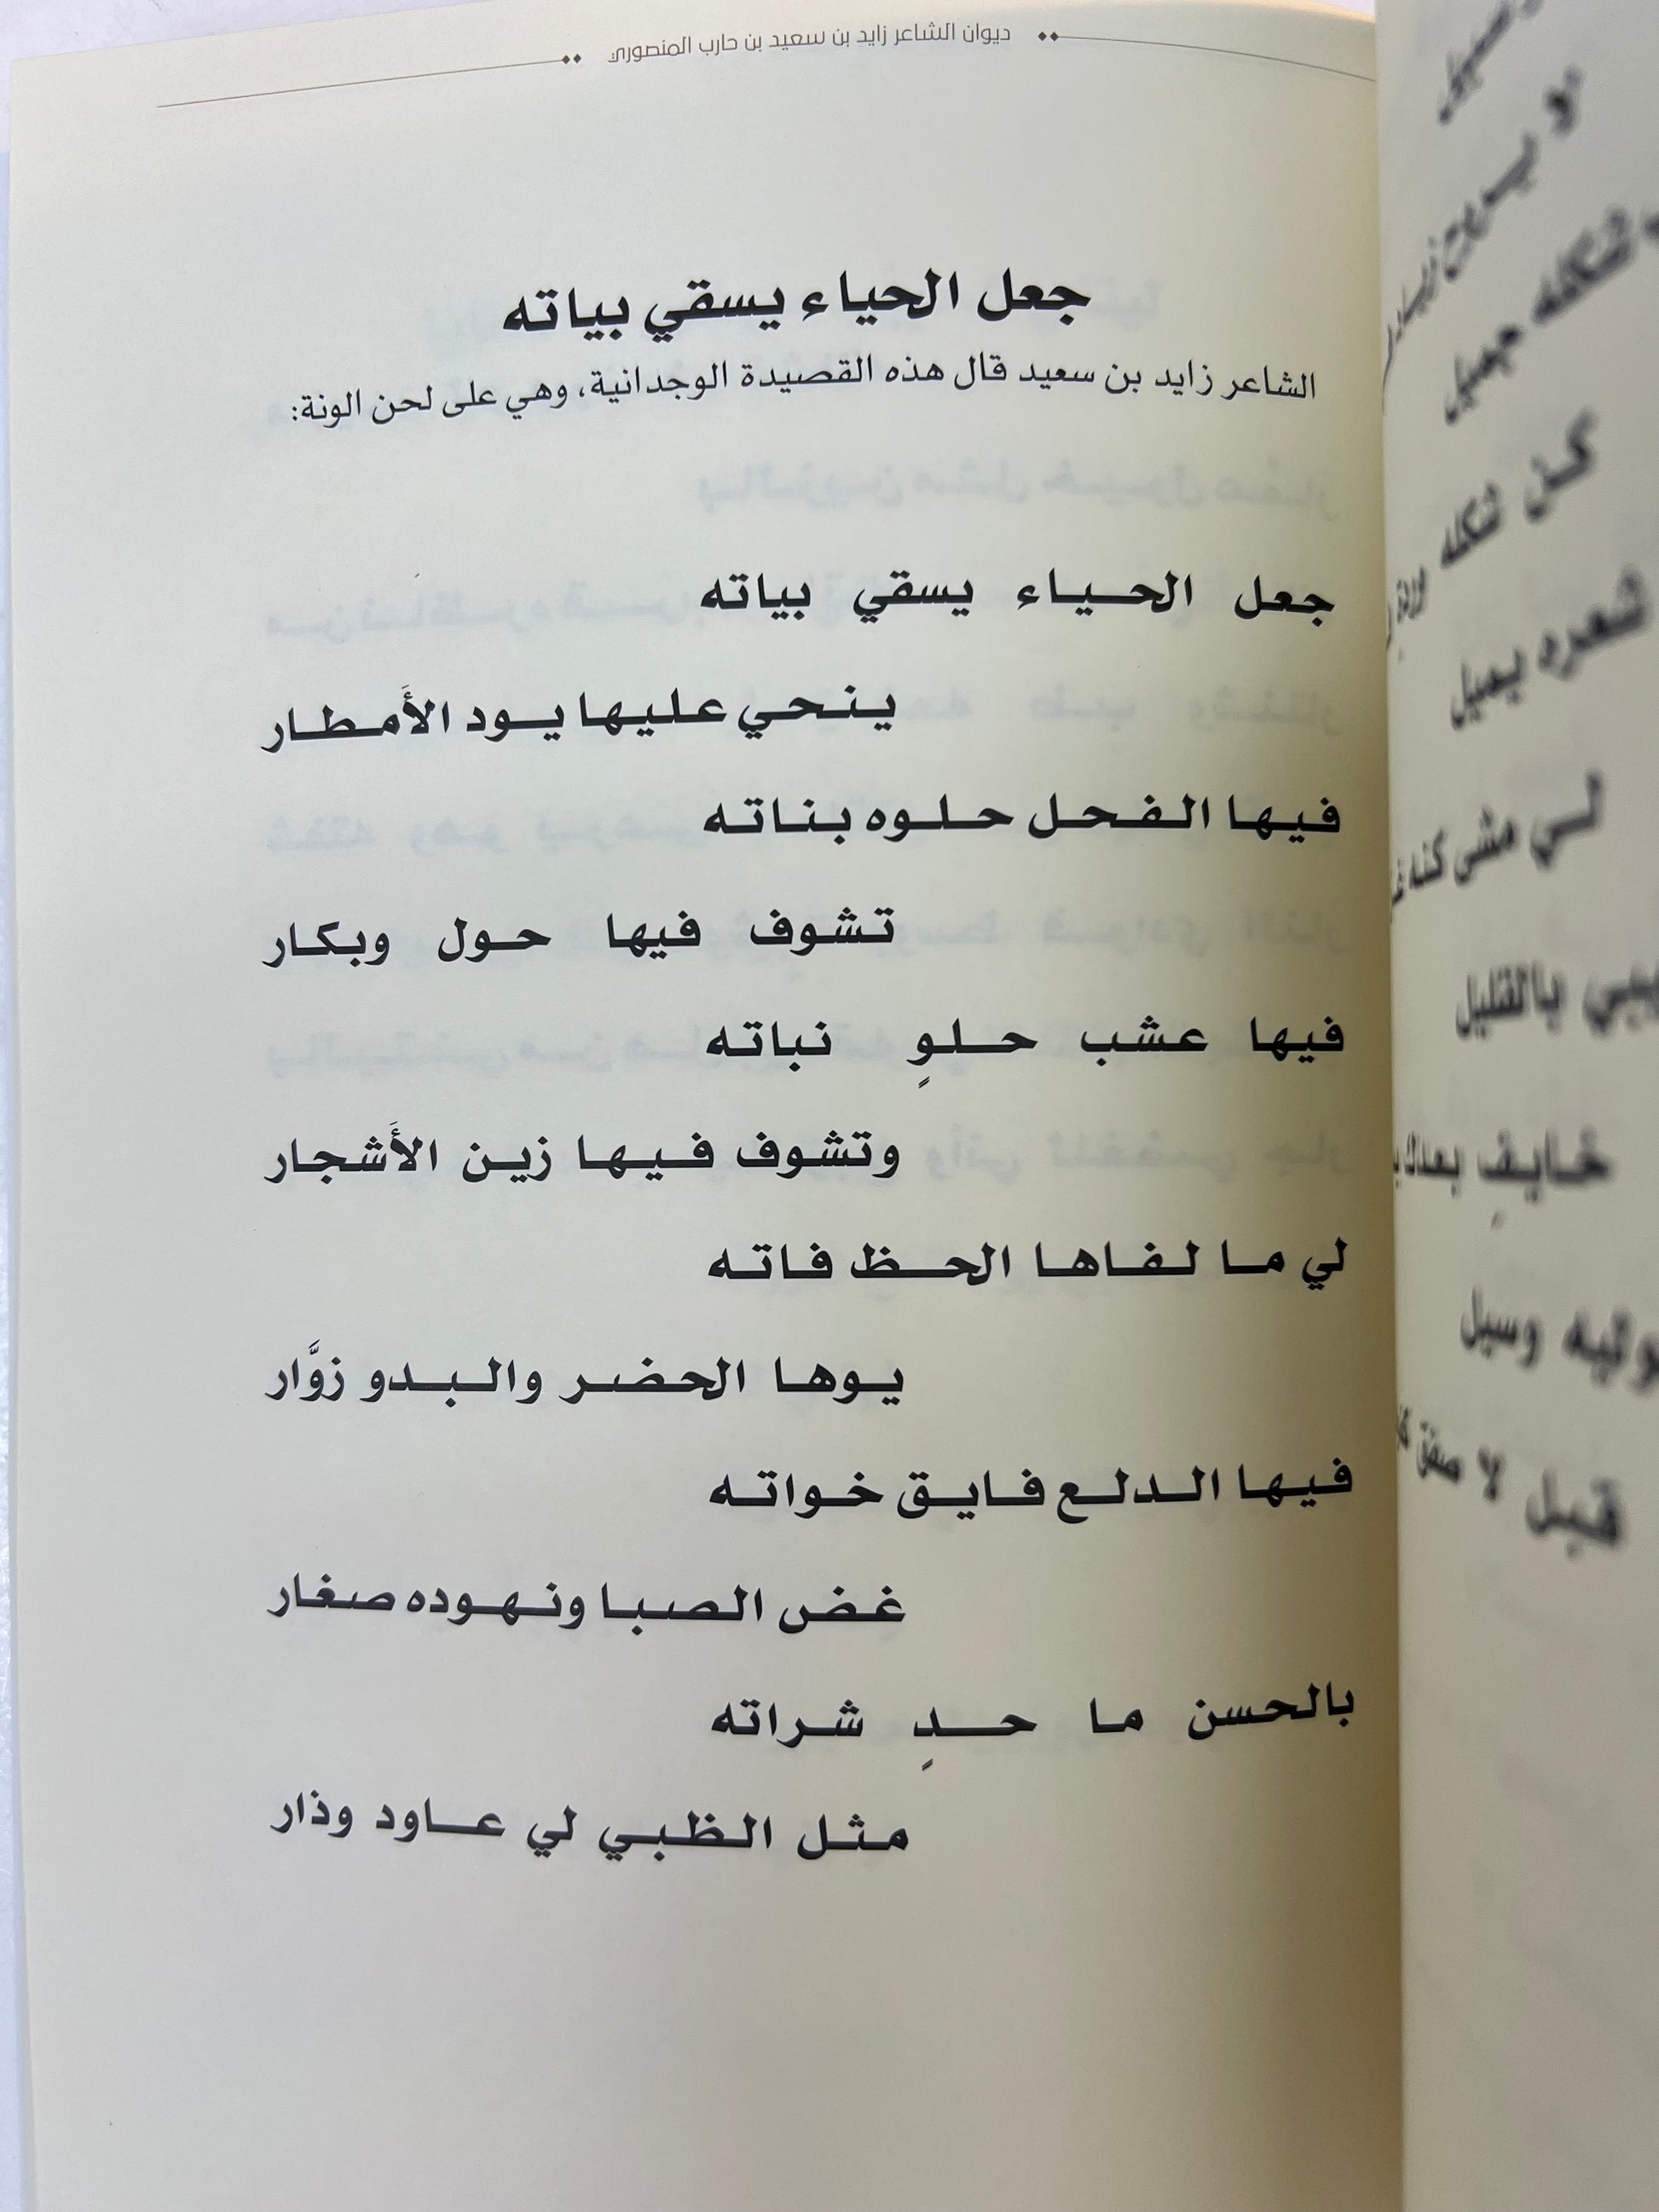 ديوان الشاعر زايد بن سعيد بن حارب المنصوري
جعل الحياء يسقي بياته
الشاعر زايد بن سعيد قال هذه القصيدة الوجدانية، وهي على لحن الونة:
جعل الحياء يسقي بياته
ينحي عليها يود الأَمطار
فيها الفحل حلوه بناته
تشوف فيها حول وبكار
فيها عشب حلوٍ نباته
وتشوف فيها زين الأَشجار
لي ما لفاها الحظ فاته
يوها الحضر والبدو زوَّار
فيها الدلع فايق خواته
غض الصبا ونهوده صغار
بالحسن ما حدٍ شراته
مثل الظبي لي عاود وذار
كن شكله
شعره يميل
لي مشى كنه
بالقليل
خايفٍ
وسيل
قبل لا